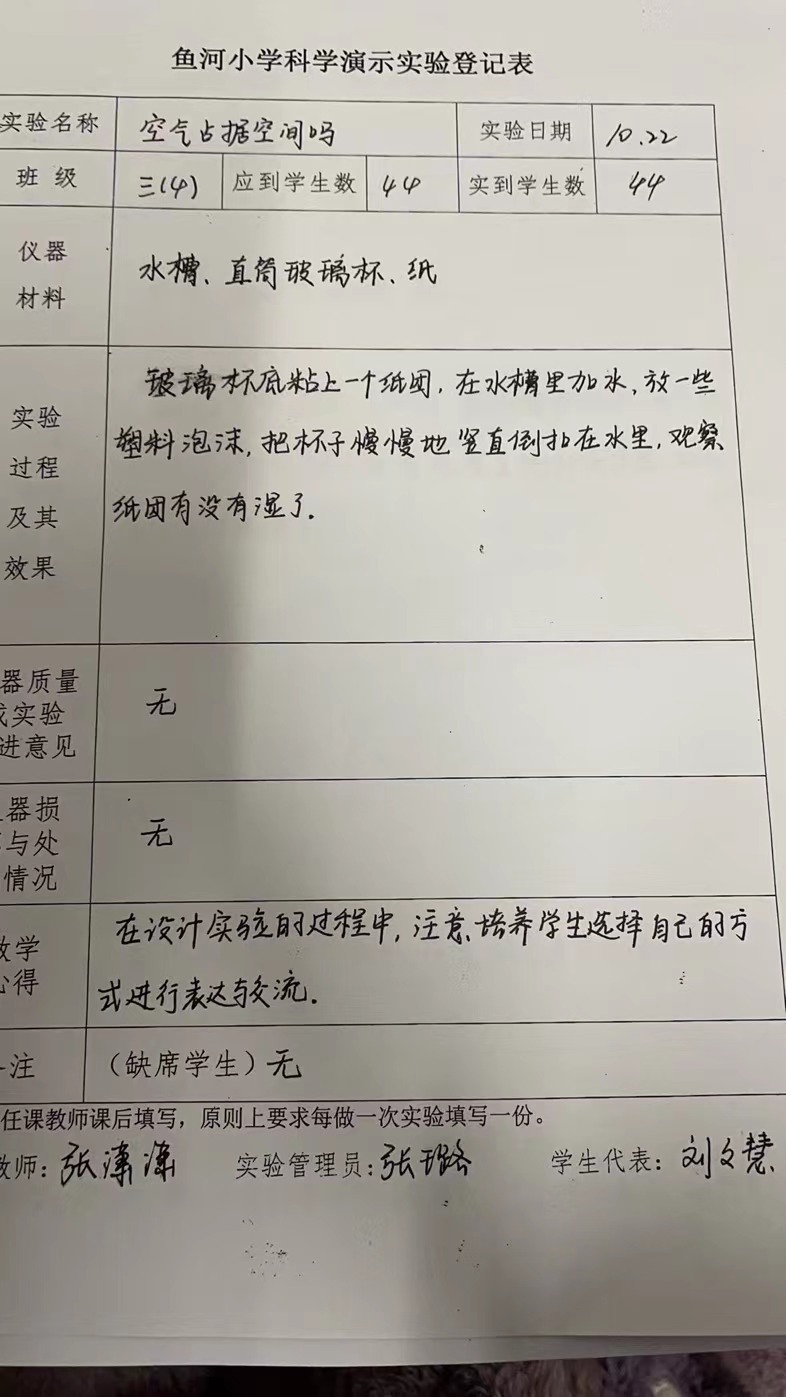 鱼河小学科学演示实验登记表
实验名称 空气占据空间吗 实验日期 10.22
班 级 三(4) 应到学生数 44 实到学生数 44
仪器
材料
水槽、直筒玻璃杯、纸
实验
过程
及其
效果
玻璃杯底粘上一个纸团,在水槽里加水,放一些
塑料泡沫,把杯子慢慢地竖直倒扣在水里,观察
纸团有没有湿了.
器质量
或实验
进意见
无
器损
与处
情况
无
教学
心得
在设计实验的过程中,注意培养学生选择自己的方
式进行表达与交流.
注 (缺席学生)无
任课教师课后填写,原则上要求每做一次实验填写一份。
教师: 张潇潇 实验管理员: 张璐 学生代表: 刘文慧